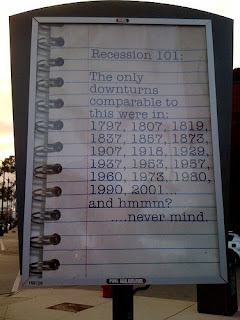 Recession 101:
The only
downturns
comparable to
this were in:
1797, 1807, 1819,
1837, 1857, 1873,
1907, 1918, 1929,
1937, 1953, 1957,
1960, 1973, 1980,
1990, 2001...
and hmmm?
....never mind.